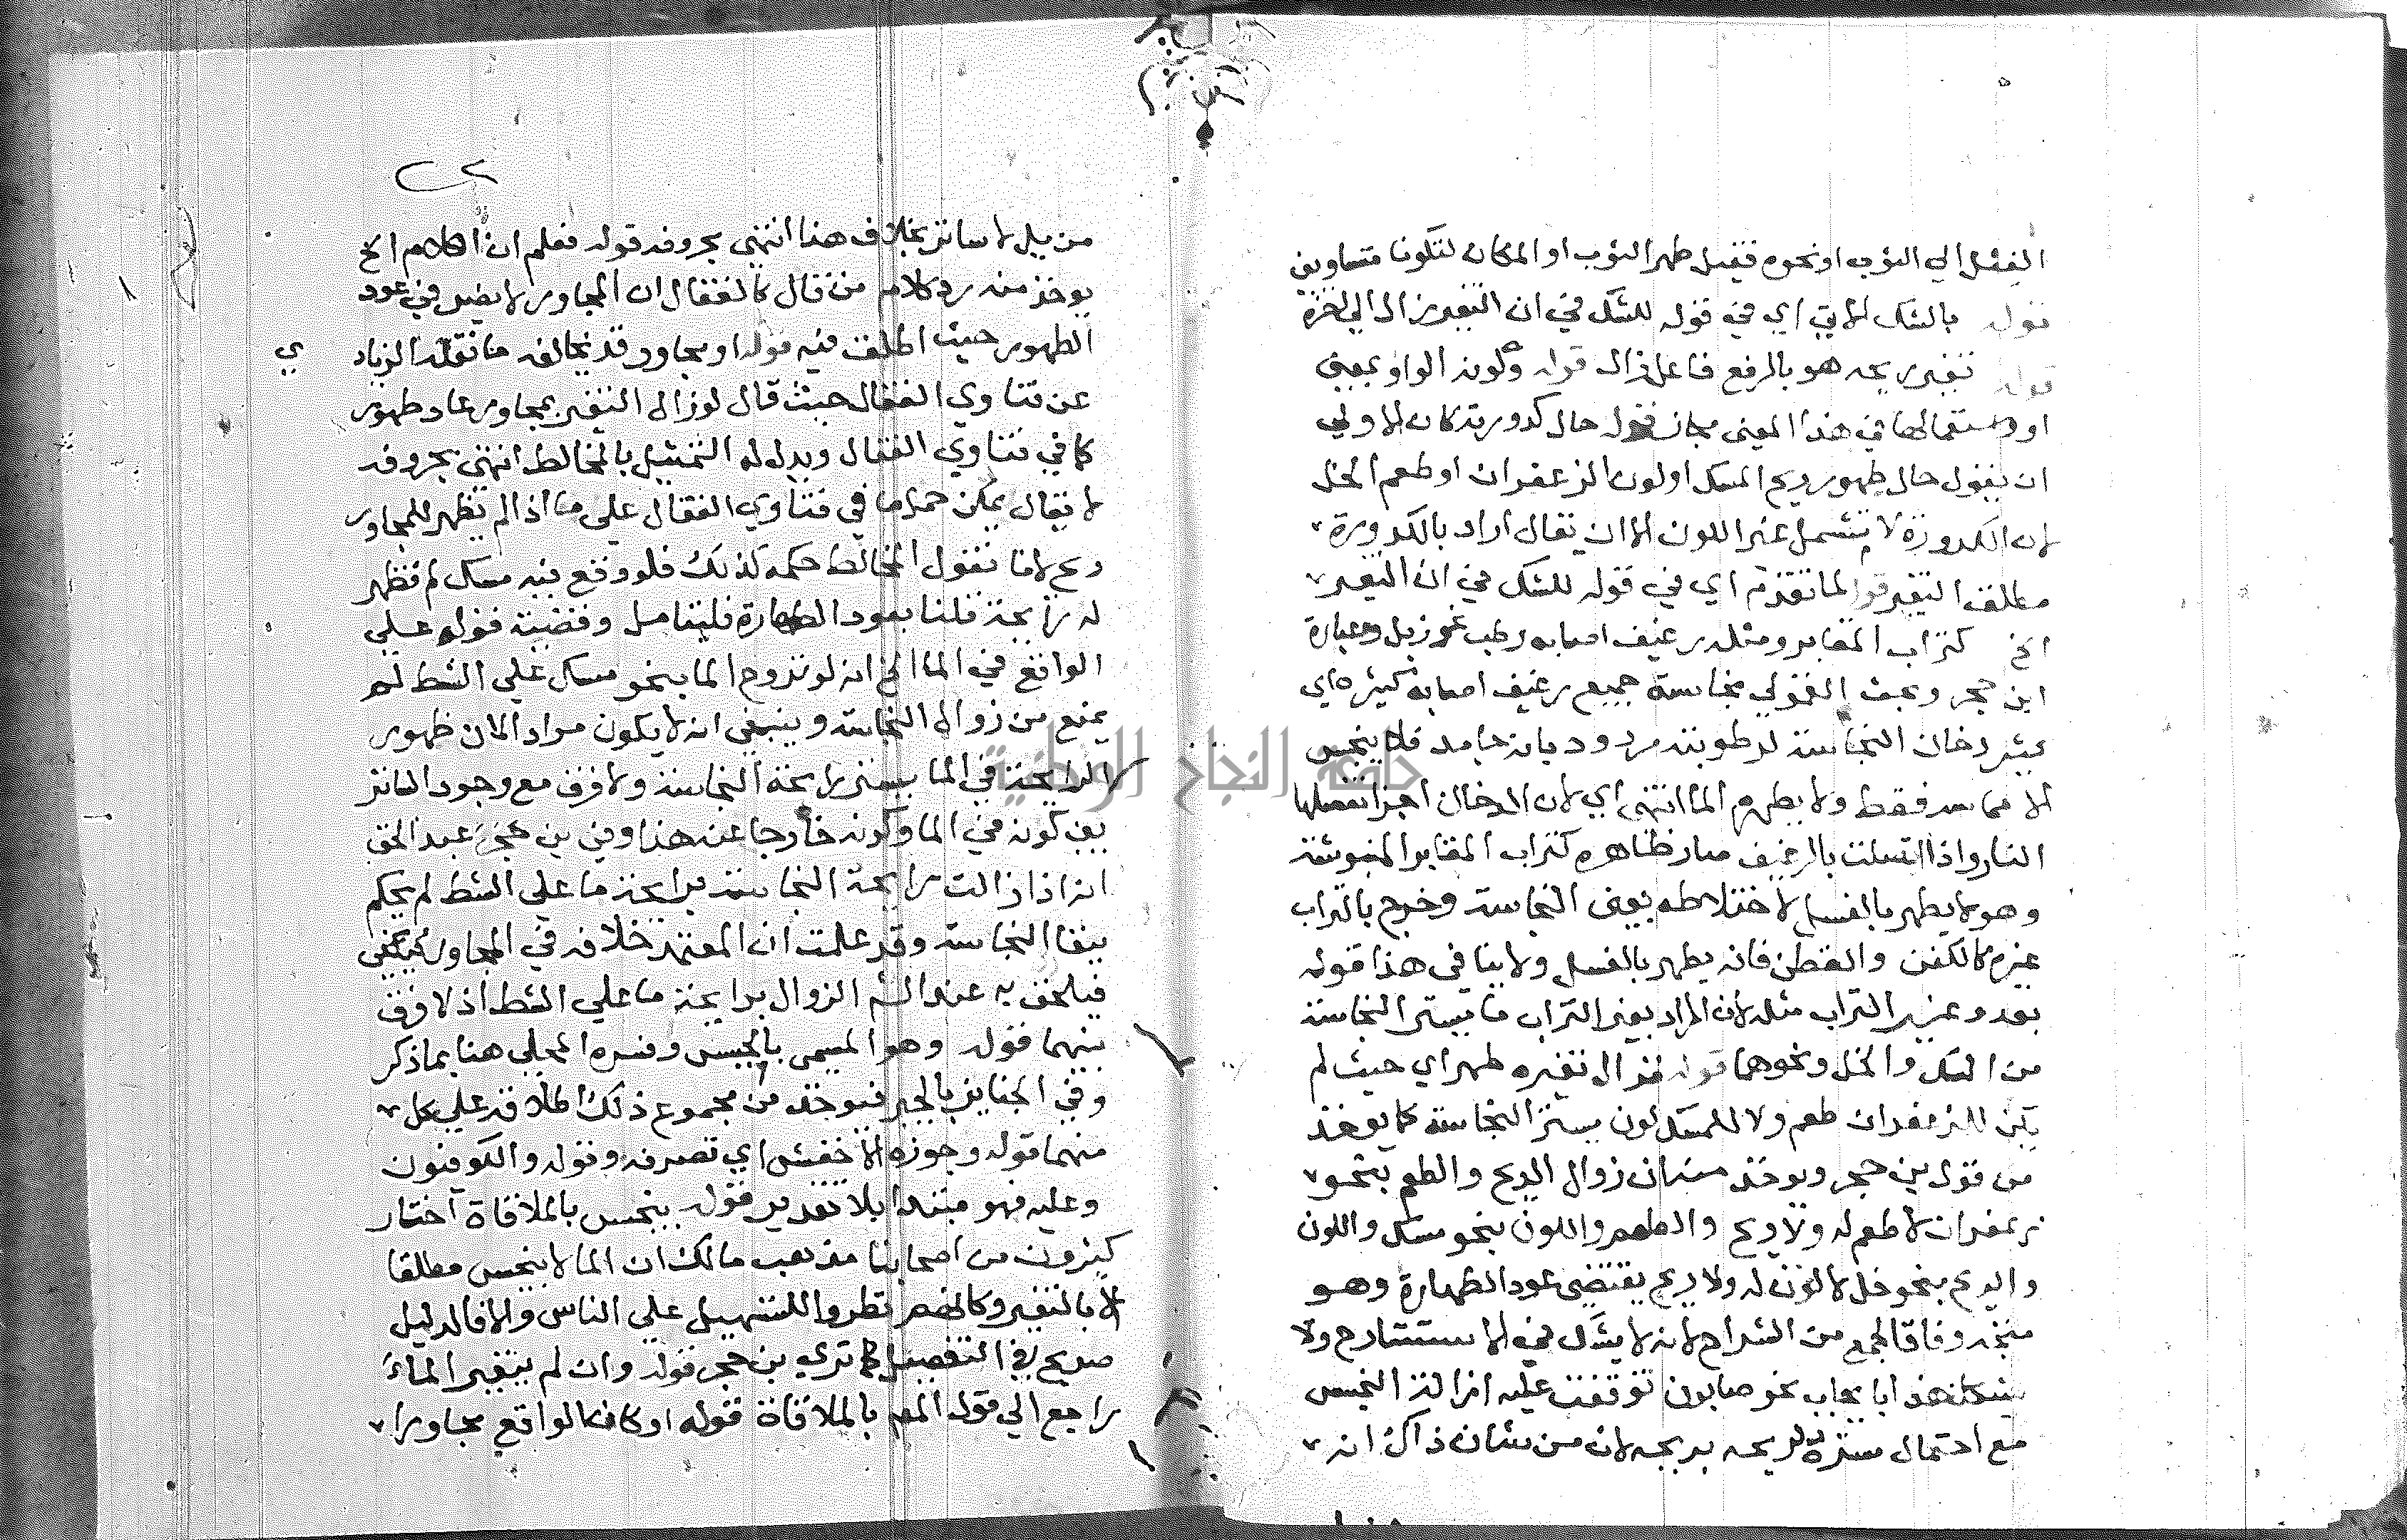 الغسل الي الثوب او نحوه فقيل طهر الثوب او المكان لتكونا متساويين
قوله بالشك الاتي اي في قوله للشك في ان التغير زال الي اخره
قوله تغير ريحه هو بالرفع فاعل زال قوله وكون الواو بمعني
او واستعمالها في هذا المعني مجاز قوله حال كدورته كان الاولي
ان يقول حال ظهور ريح المسك او لون الزعفران او طعم الخل
لان الكدورة لا تشمل غير اللون الا ان يقال اراد بالكدورة
مطلق التغير قوله لما تقدم اي في قوله للشك في ان التغير
الخ كتراب المقابر ومثله رغيف اصابه رطب نحو زبل وعبارة
ابن حجر وبحث القمولي نجاسة جميع رغيف اصابه كثيره اي
كثير دخان النجاسة لرطوبته مردود بانه جامد فلا ينجس
الا مماسه فقط ولا يطهره الما انتهي اي لان الدخان اجزا تفصلها
النار واذا اتصلت بالرغيف صار ظاهره كتراب المقابر المنبوشة
وهو لا يطهر بالغسل لاختلاطه بعين النجاسة وخرج بالتراب
غيره كالكفن والقطن فانه يطهر بالغسل ولا ينافي هذا قوله
بعد وغير التراب مثله لان المراد بغير التراب ما يستر النجاسة
من المسك والخل ونحوهما قوله فزال تغيره طهر اي حيث لم
يكن للزعفران طعم ولا للمسك لون يستر النجاسة كما يوخذ
من قول بن حجر ويوخذ منه ان زوال الريح والطعم بنحو
زعفران لا طعم له ولا ريح والطعم واللون بنحو مسك واللون
والريح بنحو خل لا لون له ولا ريح يقتضي عود الطهارة وهو
متجه وفاقا لجمع من الشراح لانه لا يشك في الاستتار ح ولا
يشكل هذا بايجاب نحو صابون توقفت عليه ازالة النجس
مع احتمال ستره لريحه بريحه لان من شان ذاك انه
من يل لا ساتر بخلاف هذا انتهي بحروفه قوله فعلم ان الكلام الخ
يوخذ منه رد كلام من قال كالقفال ان المجاور لا يضر في عود
الطهور حيث اطلق فيه قوله او مجاور قد يخالفه ما نقله الزياد
ي
عن فتاوي القفال حيث قال لو زال التغير بمجاور عاد طهور
كما في فتاوي القفال ويدل له التمثيل بالمخالط انتهي بحروفه
لا يقال يمكن حمل ما في فتاوي القفال علي ما اذا لم تظهر للمجاور
ريح لانا نقول المخالط حكمه كذلك فلو وقع فيه مسك لم تظهر
له رايحة قلنا بعود الطهارة فليتامل وقضية قوله علي
الواقع في الما الخ انه لو تروح الما بنحو مسك علي الشط لم
يمنع من زوال النجاسة وينبغي انه لا يكون مراد الان ظهور
الرايحة في الما يستر رايحة النجاسة ولا فرق مع وجود الساتر
بين كونه في الما وكونه خارجا عنه هذا وفي بن حجر عبد الحق
انه اذا زالت رايحة النجاسة برايحة ما علي الشط لم يحكم
ببقا النجاسة وقد علمت ان المعتمد خلافه في المجاور
فيلحق به عند الشم الزوال برايحة ما علي الشط اذ لا فرق
بينهما قوله وهو المسمي بالجبس وفسره المحلي هنا بما ذكر
وفي الجنايز بالجير فيوخذ من مجموع ذلك اطلاقه علي كل
منهما قوله وجوزه الاخفش اي تصرفه وقوله والكوفيون
وعليه فهو مبتدا بلا تقدير قوله ينجس بالملاقاة اختار
كثيرون من اصحابنا مذهب مالك ان الما لا ينجس مطلقا
الا بالتغير وكانهم نظروا للتسهيل علي الناس والا فالدليل
صريح في التفصيل كما تري بن حجر قوله وان لم يتغير الماء
راجع الي قول المص بالملاقاة قوله او كان الواقع مجاورا
جامعة النجاح الوطنية